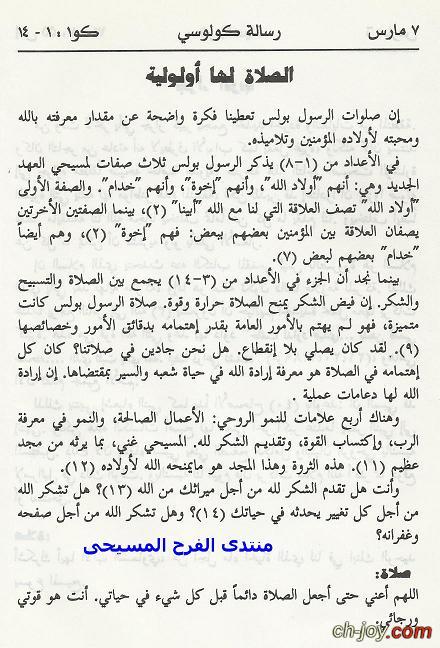 ٧ مارس رسالة كولوسي كو١ : ١ - ١٤
الصلاة لها أولولية
إن صلوات الرسول بولس تعطينا فكرة واضحة عن مقدار معرفته بالله
ومحبته لأولاده المؤمنين وتلاميذه.
في الأعداد من (١-٨) يذكر الرسول بولس ثلاث صفات لمسيحي العهد
الجديد وهي: أنهم "أولاد الله"، وأنهم "إخوة"، وأنهم "خدام". والصفة الأولى
"أولاد الله" تصف العلاقة التي لنا مع الله "أبينا" (٢)، بينما الصفتين الأخرتين
يصفان العلاقة بين المؤمنين بعضهم ببعض: فهم "إخوة" (٢)، وهم أيضاً
"خدام" بعضهم لبعض (٧).
بينما نجد أن الجزء في الأعداد من (٣-١٤) يجمع بين الصلاة والتسبيح
والشكر. إن فيض الشكر يمنح الصلاة حرارة وقوة. صلاة الرسول بولس كانت
متميزة، فهو لم يهتم بالأمور العامة بقدر إهتمامه بدقائق الأمور وخصائصها
(٩). لقد كان يصلي بلا إنقطاع. هل نحن جادين في صلاتنا؟ كان كل
إهتمامه في الصلاة هو معرفة إرادة الله في حياة شعبه والسير بمقتضاها. إن إرادة
الله لها دعامات عملية .
وهناك أربع علامات للنمو الروحي: الأعمال الصالحة، والنمو في معرفة
الرب، وإكتساب القوة، وتقديم الشكر لله. المسيحي غني، بما يرثه من مجد
عظيم (١١). هذه الثروة وهذا المجد هو مايمنحه الله لأولاده (١٢).
وأنت هل تقدم الشكر لله من أجل ميراثك من الله (١٣)؟ هل تشكر الله
من أجل كل تغيير يحدثه في حياتك (١٤)؟ وهل تشكر الله من أجل صفحه
وغفرانه؟
منتدى الفرح المسيحى
صلاة:
اللهم أعني حتى أجعل الصلاة دائماً قبل كل شيء في حياتي. أنت هو قوتي
ورجائي.
ch-joy.com